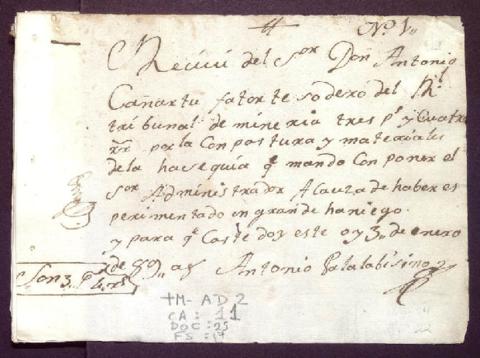 Nº 1„
Reciví del Sor Don Antonio
Cañartu fator tesodero del Rl
tribunal de mineria tres ps y Cuatro
rrs por la Conpostura y materiales
de la hasequia q mando Con poner el
Sor Administrador A Cauza de haber es
perimentado un grande haniego.
y para q Coste doy este oy 3„ de enero
de 89„ as Antonio
Son 3„ Ps 4 rrs
TM-AD2
CA: 11
DOC: 25
FS: 17